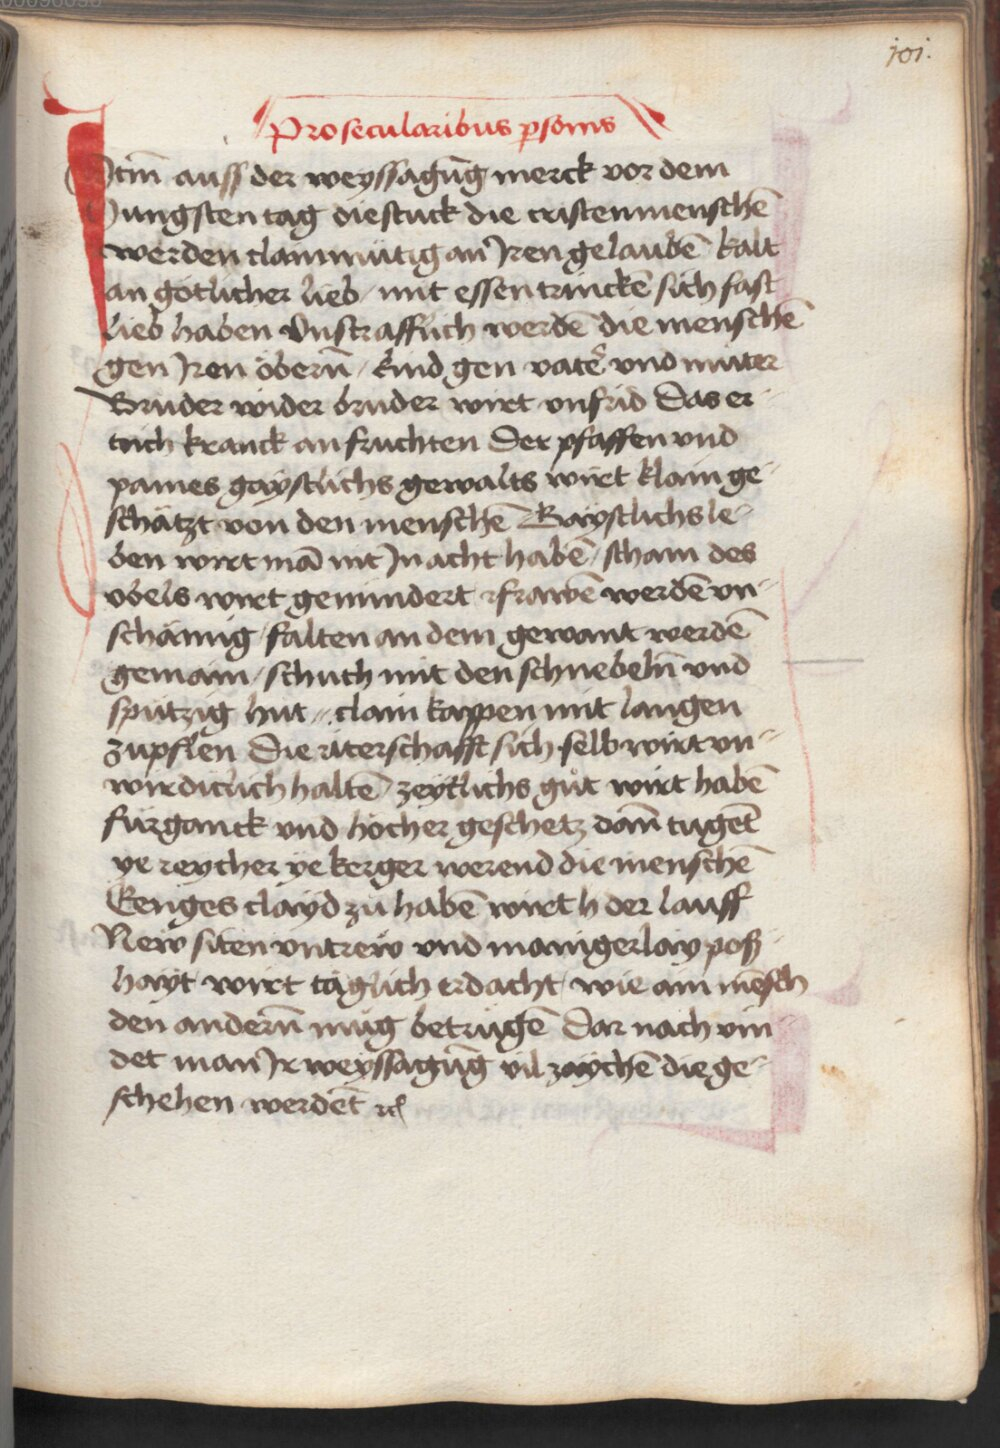 101.
Pro secularibus ꝑsonis
Itm̄ auss der weyssagūg merck vor dem
Jungsten tag die stuck die cristenmenschē
werden clainmütig an Jren gelaubē kalt
an gotlicher lieb / mit essen trinckē sich fast
lieb haben Vnstrafflich werdē die menschē
gen Jren öbern̄ / kind gen vater vnd muter
Bruder wider bruder wirt vnfrid Das er
trich kranck an fruchten Der pfaffen vnd
pames gaystlichs gewalts wirt klain ge-
schätzt von den menschē Gaystlichs le-
ben wirt mā nit Jn acht habē / scham des
vbels wirt gemindert frawē werdē vn-
schämig / falten an dem gewant werdē
gemain / schuch mit den schnebeln̄ vnd
spitzig hut // clain kappen mit langen
zupflen Die riterschafft sich selb wirt vn-
wirdiclich haltē / zeytlichs gůt wirt habē
fürganck vnd höcher geschetz dan̄ tugēt
ye reycher ye kerger werend die menschē
Eeniges clayd zu habē wirt h der lauff
New siten vntrew vnd manigerlay posz-
hayt wirt täglich erdacht / wie ain mēsch
den andern̄ müg betrugē Dar nach vin-
det man Jr weyssagūg vil zaychē die ge-
schehen werdēt ꝛc